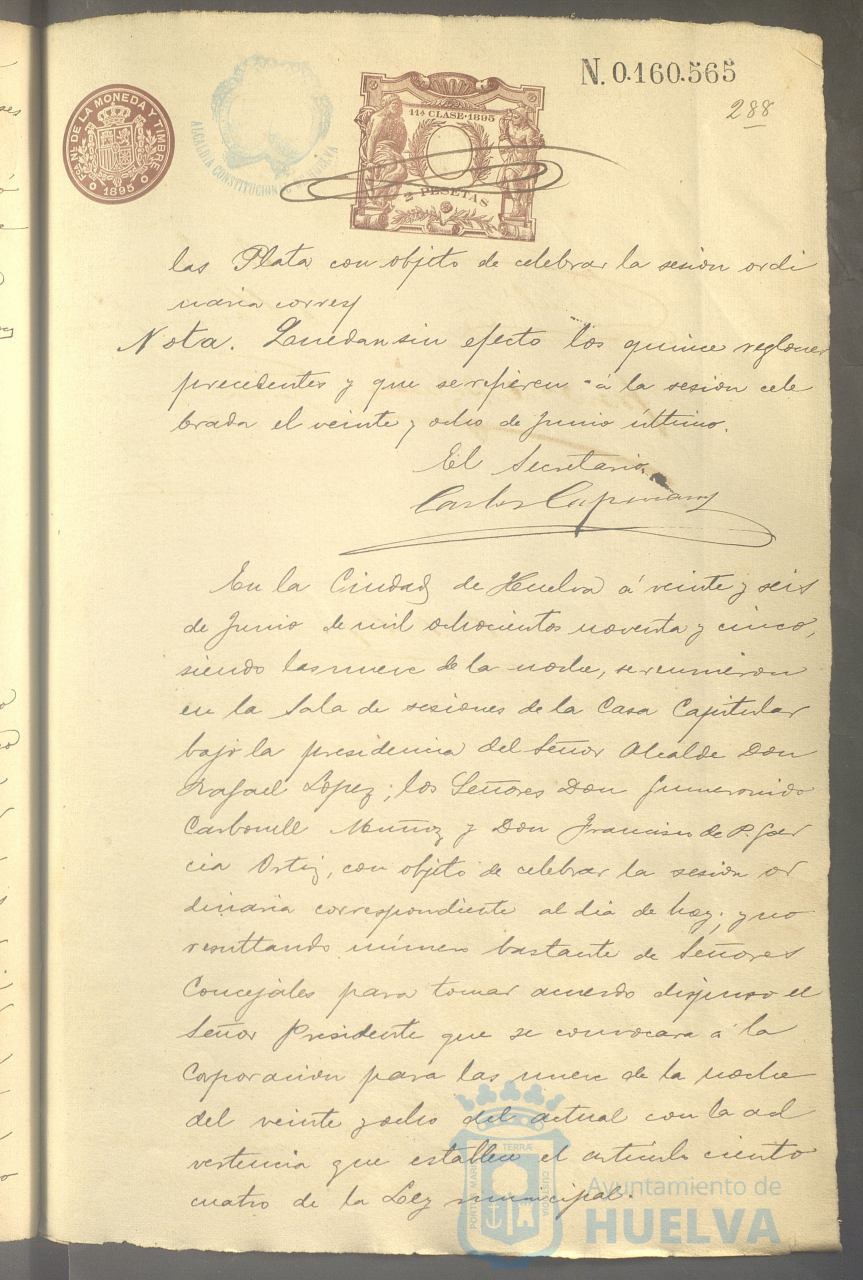 N. 0.160.565
288
Fca. Nl. DE LA MONEDA Y TIMBRE
1895
ALCALDIA CONSTITUCIONAL DE HUELVA
11ª CLASE·1895
2 PESETAS
las Plata con objeto de celebrar la sesion ordi
naria corres
Nota. Quedan sin efecto los quince reglones
precedentes y que se refieren á la sesion cele
brada el veinte y ocho de Junio último.
El Secretario
Carlos
En la Ciudad de Huelva á veinte y seis
de Junio de mil ochocientos noventa y cinco,
siendo las nueve de la noche, se reunieron
en la Sala de sesiones de la Casa Capitular
bajo la presidencia del Señor Alcalde Don
Rafael Lopez; los Señores Don Gumersindo
Carbonell Muñoz y Don Francisco de P. Gar
cia Ortiz, con objeto de celebrar la sesion or
dinaria correspondiente al dia de hoy; y no
resultando número bastante de Señores
Concejales para tomar acuerdo dispuso el
Señor Presidente que se convocara á la
Corporacion para las nueve de la noche
del veinte y ocho del actual con la ad
vertencia que establece el articulo ciento
cuatro de la Ley municipal.
PORTUS MARIS ET TERRÆ CUSTODIA
Ayuntamiento de
HUELVA